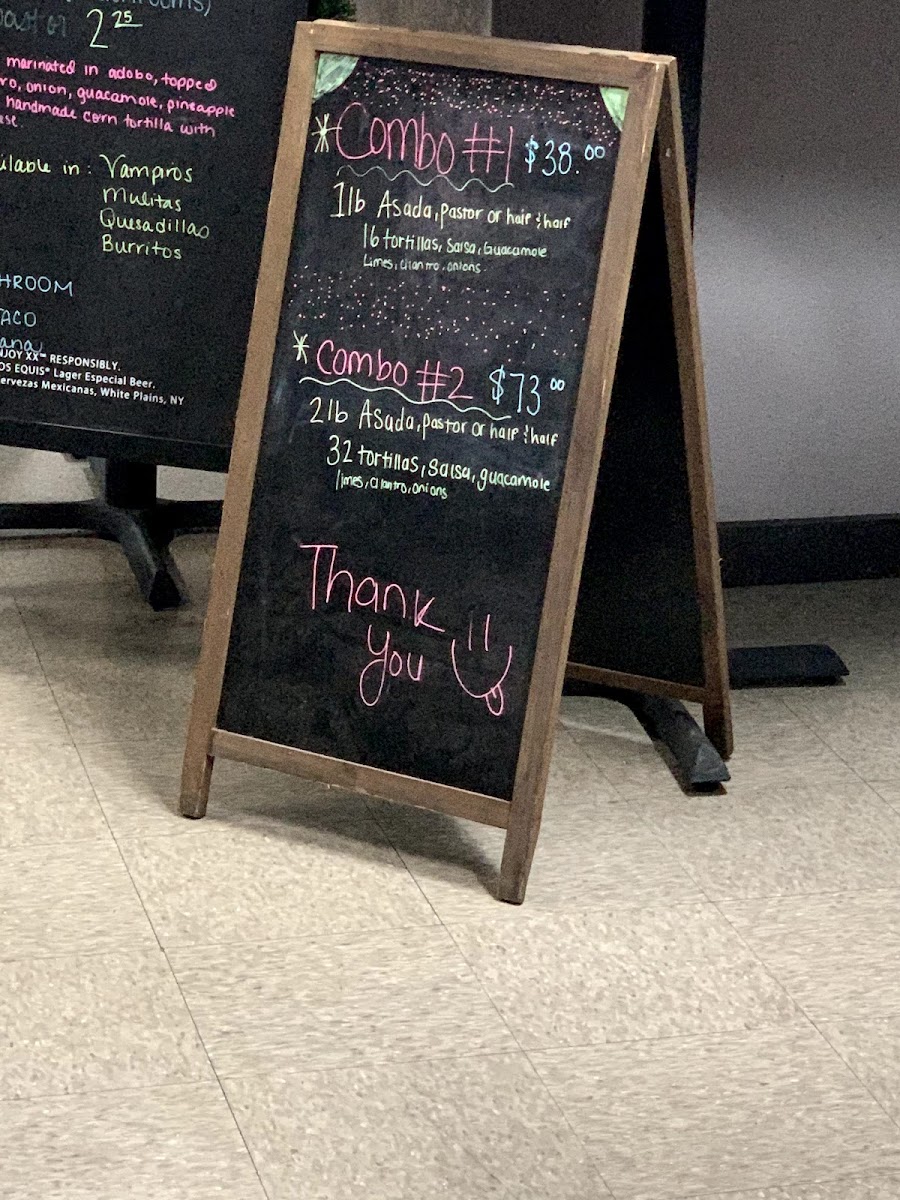 2 25
marinated in adobo, topped
onion, guacamole, pineapple
handmade corn tortilla with
in: Vampiros
Mulitas
Quesadillas
Burritos
TACO
XX™ RESPONSIBLY.
EQUIS® Lager Especial Beer.
Mexicanas, White Plains, NY
*Combo #1 $38.00
1lb Asada, pastor or half & half
16 tortillas, Salsa, Guacamole
Limes, cilantro, onions
*Combo #2 $73 00
2lb Asada, pastor or half & half
32 tortillas, salsa, guacamole
limes, cilantro, onions
Thank
you